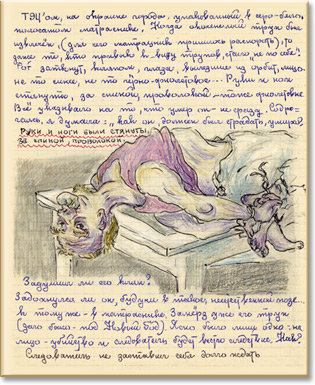 ТЭЦ'ом, на окраине города, упакованный, в серо-белом,
полосатом матраснике. Когда окоченелый труп был
извлечен (для чего матрасник пришлось распороть), то
даже тем, кто привык к виду трупов, стало не по себе!
Рот заткнут, платком, глаза, вылезшие из орбит, лицо-
не то синее, не то чёрно-фиолетовое... Руки и ноги
стянуты, за спиной, проволокой - тоже фиолетовые
Всё указывало на то, что умер он - не сразу. Содро-
саясь, я думала: "как он должен был страдать, умирая!
РУКИ И НОГИ БЫЛИ СТЯНУТЫ,
ЗА СПИНОЙ, ПРОВОЛОКОЙ.
Задушил ли его кляп?
Задохнулся ли он, будучи в такой, неестественной позе..
к тому же - в матраснике. Замерз уже его труп
(дело было - под Новый Год). Ясно было лишь одно: на
лицо - убийство и следователь будет весьма следствие. Как?
Следователь не заставил себя долго ждать